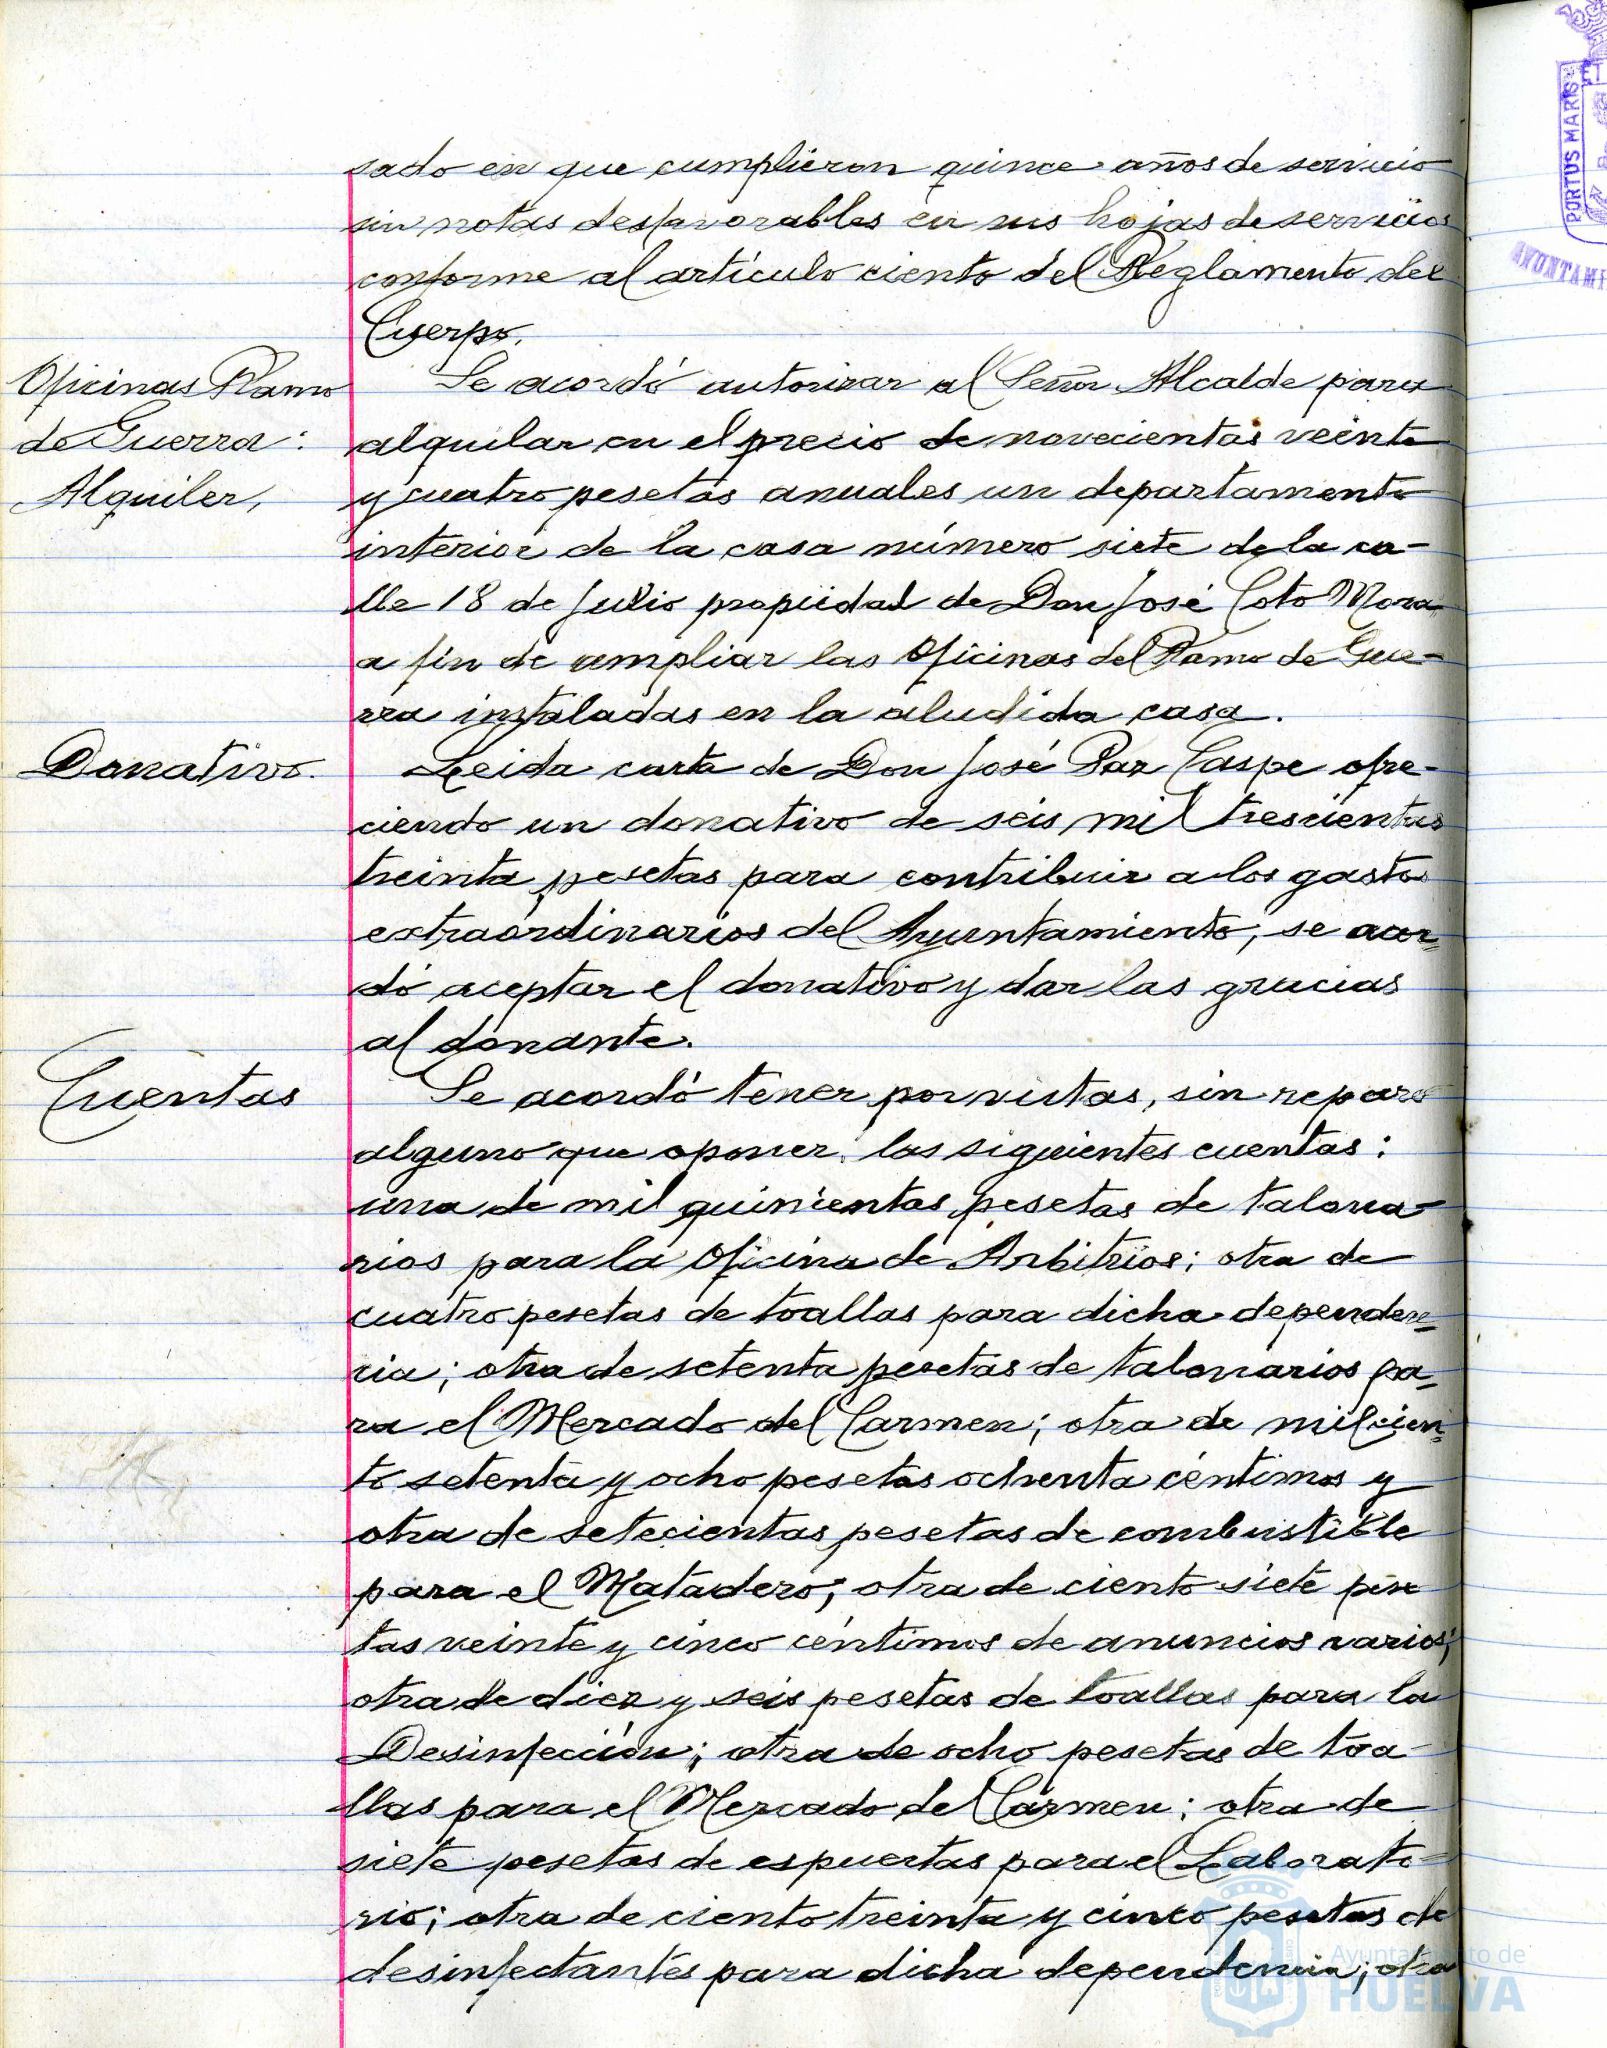 sado en que cumplieron quince años de servicio
sin notas desfavorables en sus hojas de servicios
conforme al artículo ciento del Reglamento del
Cuerpo.
Oficinas Ramo
de Guerra:
Alquiler,
Se acordó autorizar al Señor Alcalde para
alquilar en el precio de novecientas veinte
y cuatro pesetas anuales un departamento
interior de la casa número siete de la ca-
lle 18 de Julio propiedad de Don José Coto Mora
a fin de ampliar las Oficinas del Ramo de Gue-
rra instaladas en la aludida casa.
Donativo.
Leida carta de Don José Paz Caspe ofre-
ciendo un donativo de seis mil trescientas
treinta pesetas para contribuir a los gastos
extraordinarios del Ayuntamiento, se acor-
dó aceptar el donativo y dar las gracias
al donante.
Cuentas
Se acordó tener por vistas, sin reparo
alguno que oponer, las siguientes cuentas:
una de mil quinientas pesetas de talona-
rios para la Oficina de Arbitrios; otra de
cuatro pesetas de toallas para dicha dependen-
cia; otra de setenta pesetas de talonarios pa-
ra el Mercado del Carmen; otra de mil cien-
to setenta y ocho pesetas ochenta céntimos y
otra de setecientas pesetas de combustible
para el Matadero; otra de ciento siete pese
tas veinte y cinco céntimos de anuncios varios;
otra de diez y seis pesetas de toallas para la
Desinfección; otra de ocho pesetas de toa-
llas para el Mercado del Carmen; otra de
siete pesetas de espuertas para el Laborato-
rio; otra de ciento treinta y cinco pesetas de
desinfectantes para dicha dependencia; otra
PORTUS MARIS ET
AYUNTAMI
Ayuntamiento de
HUELVA